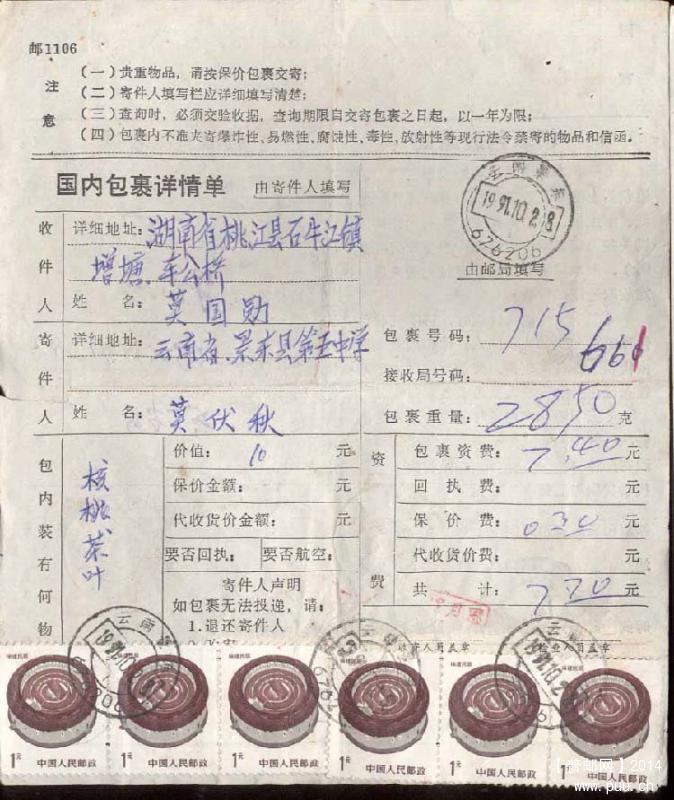 邮1106
注意
(一)贵重物品，请按保价包裹交寄；
(二)寄件人填写栏应详细填写清楚；
(三)查询时，必须交验收据，查询期限自交寄包裹之日起，以一年为限；
(四)包裹内不准夹寄爆炸性、易燃性、腐蚀性、毒性、放射性等现行法令禁寄的物品和信函。
国内包裹详情单 由寄件人填写
云南景东
1991.10.28
626206
由邮局填写
收件人
详细地址：湖南省桃江县石牛江镇
增塘 车公桥
姓 名：莫国勋
寄件人
详细地址：云南省景东县第五中学
姓 名：莫伏秋
包裹号码：715
666
接收局号码：
包裹重量：2850克
包内装有何物
核桃茶叶
价值：10 元
保价金额： 元
代收货价金额： 元
要否回执： 要否航空：
寄件人声明
如包裹无法投递，请：
1.退还寄件人
资费
包裹资费：7.40元
回执费： 元
保价费：0.30元
代收货价费： 元
共 计：7.70元
福建民居 福建民居 福建民居 福建民居 福建民居 福建民居
1元 中国人民邮政 1元 中国人民邮政 1元 中国人民邮政 1元 中国人民邮政 1元 中国人民邮政 1元 中国人民邮政
【普邮网】2014
www.puu.cn